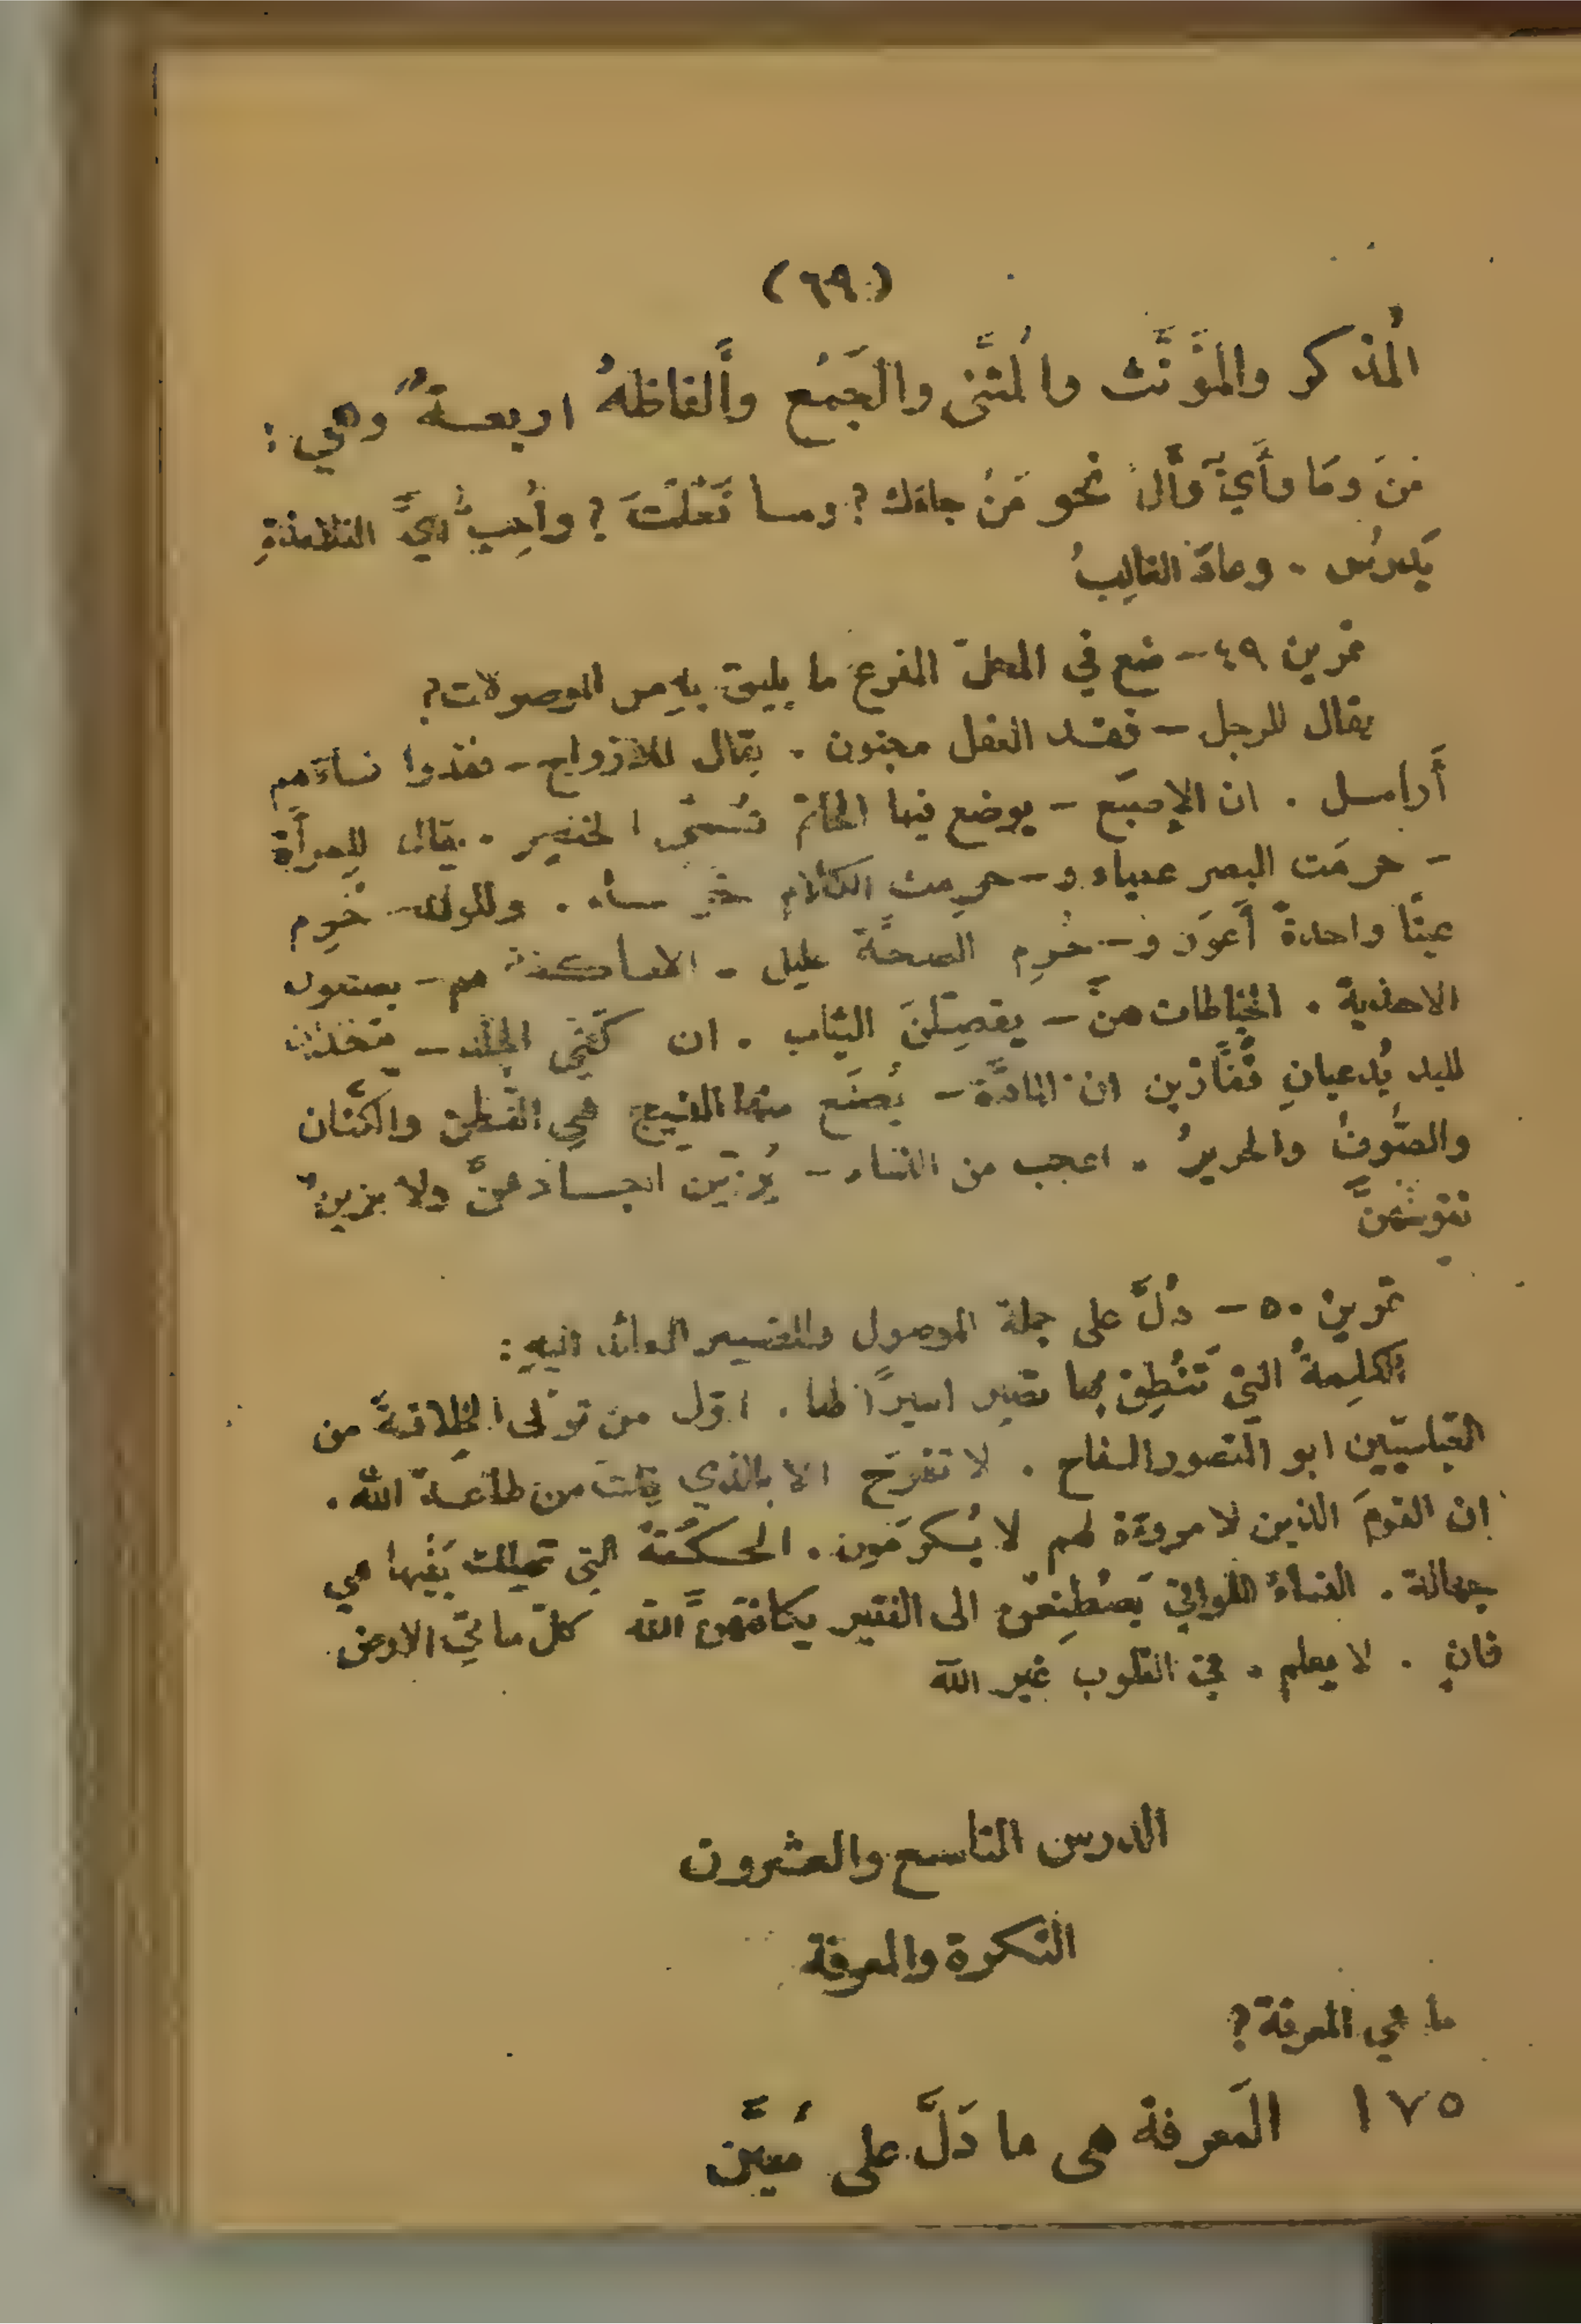 (٦٩)
المُذكر والمؤَنَّث والمُثَنَّى والجَمْع وأَلفاظهُ اربعـةٌ وهي :
مَنْ ومَا وأَيّ وأَلْ نحو مَنْ جاءَك ? ومـا فَعَلْتَ ? وأُحِبُّ أيَّ التلامذةِ
يَدرُس . وعادَ الغالِبُ
تمرين ٤٩ – ضع في المحلّ المفرغ ما يليق بهِ من الموصولات ?
يقال للرجل – فقـد العقل مجنون . يقال للازواج – فقدوا نساءَهم
أَرامـل . ان الإصبَع – يوضع فيها الخاتم تُسمَّى الخنصِر . يقال للمرأَة
– حرمَت البصر عمياء و – حرمت الكلام خرسـاء . وللولد – حُرِم
عينًا واحدةً أَعوَر و – حُرِم الصحَّة عليل . الاسـاكفـة هم – يصنعون
الاحذية . الخيَّاطات هنَّ – يفصِّلنَ الثياب . ان كَفَّي الجلد –
لليد يُدعيانِ قُفَّازين ان المادَّة – يُصنَع منها النسيج هي القُطن والكتَّان
والصُّوفُ والحريرُ . اعجب من النساء – يُزيّن اجسـادهنَّ ولا يزينَّ
نفوسَهنَّ
تمرين ٥٠ – دُلَّ على جملة الموصول والضمير العائد اليهِ :
الكلِمةُ التي تَنْطِق بها تصير اسيرًا لها . اوّل من تولّى الخِلافةَ من
العبّاسيّين ابو المنصور السفاح . لا تفرَح الا بالذي نِلتَ من طاعـة الله .
ان القومَ الذين لا مروءَة لهم لا يُـكرَمون . الحـكْمَةُ التي تهمِلُ بَثَّها هي
جهالة . النساءُ اللواتي يَصْطنِعْنَ الى الفقير يكافئهنَّ الله كلّ ما في الارض
فانٍ . لا يعلم . في القلوب غير الله
الدرس التاسع والعشرون
النكرة والمعرفة
ما هي المعرفة ?
١٧٥ المَعرفة هي ما دَلَّ على مُعيَّن